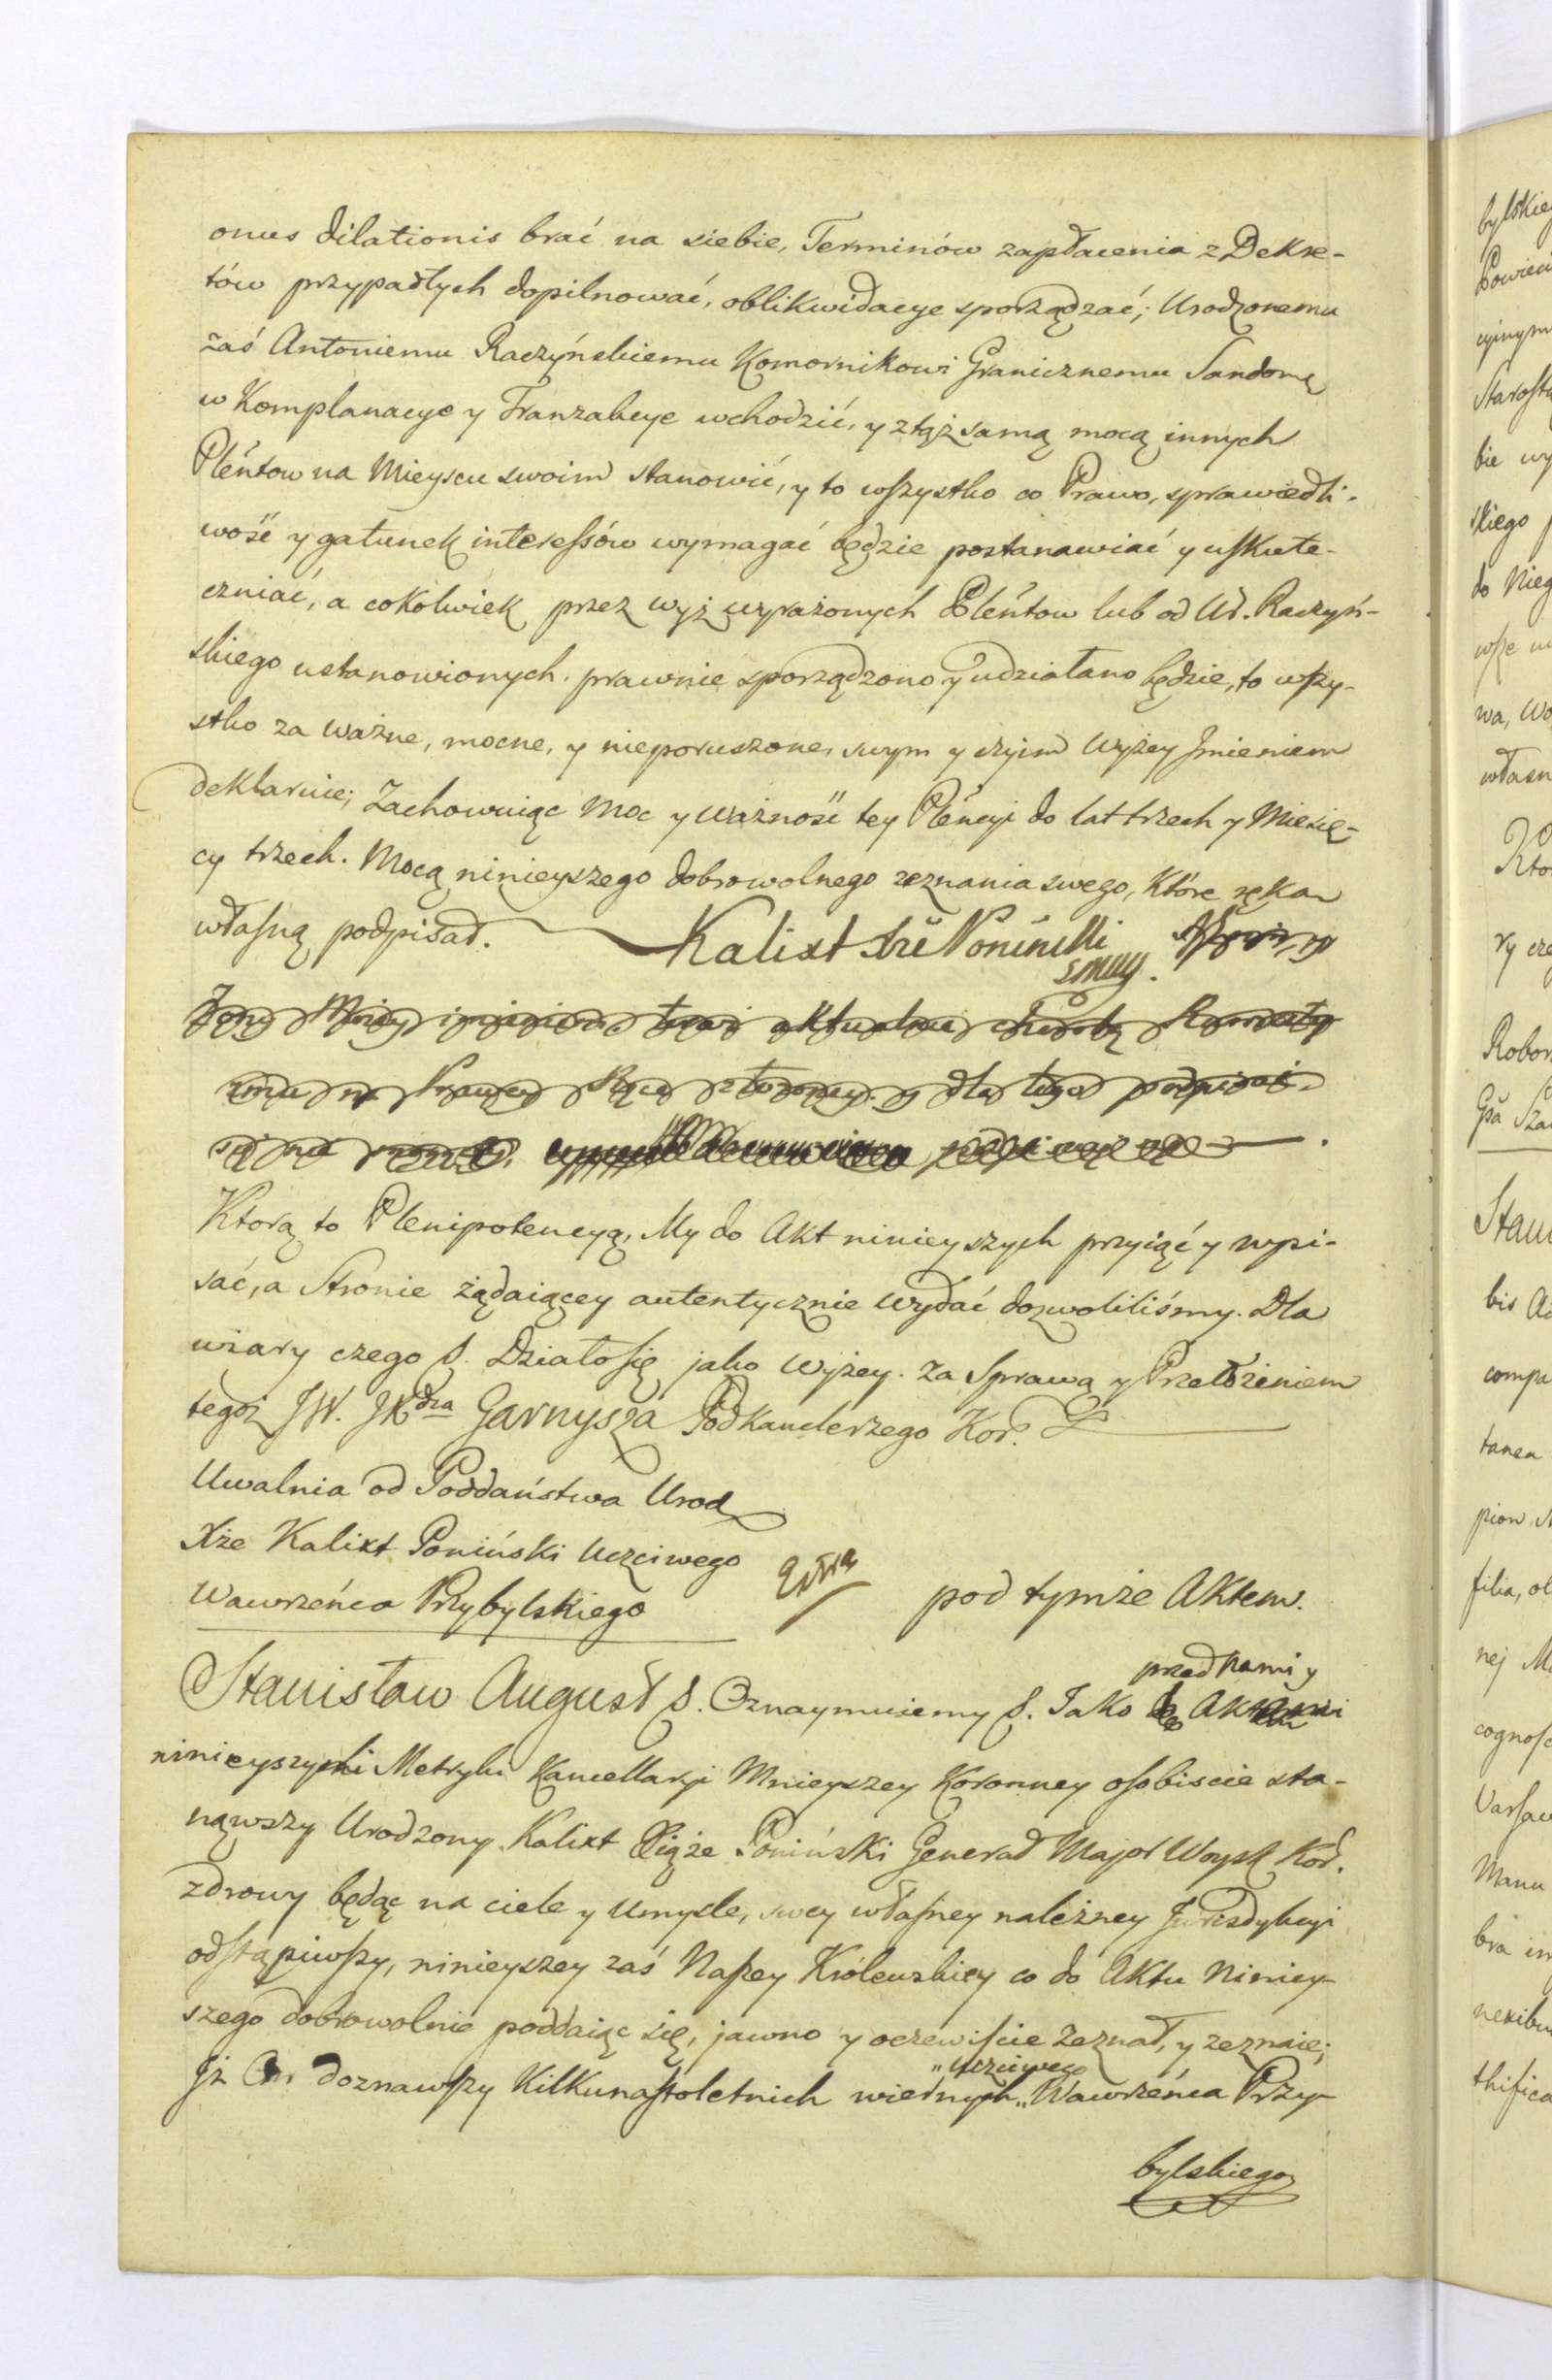 onus dilationis brać na siebie, Terminów zapłacenia z Dekre-
tów przypadłych dopilnować, oblikwidacye sporządzać; Urodzonemu
zaś Antoniemu Raczyńskiemu Komornikowi Granicznemu Sandom:
w Komplanacye y Tranzakcye wchodzić, y z tąż samą mocą innych
Pleńtow na Mieyscu swoim stanowić, y to wszystko co Prawo, sprawiedli-
wość y gatunek interessów wymagać będzie postanawiać y uskute-
czniać, a cokolwiek przez wyż wyrażonych Pleńtow lub od Ur. Raczyń-
skiego ustanowionych prawnie sporządzono y udziałano będzie, to wszy-
stko za ważne, mocne, y nieporuszone, swym y czyim wyżey Jmieniem
deklaruie; Zachowuiąc moc y ważność tey Pleńcyi do lat trzech y Miesię-
cy trzech. Mocą ninieyszego dobrowolnego zeznania swego, które ręką
własną podpisał. Kalixt Xże Poninski
Zony imieniem aktualną chorobą
w prawey Ręce złożoney y dla tego podpisać
się nie
Ktorą to Plenipotencyą, My do Akt ninieyszych przyiąć y wpi-
sać, a Stronie żądaiącey autentycznie wydać dozwoliliśmy. Dla
wiary czego &. Działo się jako wyżey. Za Sprawą y Przełożeniem
tegoż JW. JXdza Garnysza Podkanclerzego Kor.
Uwalnia od Poddaństwa Urod
Xże Kalixt Poniński Uczciwego
Wawrzeńca Przybylskiego
pod tymże Aktem.
Stanisław August &. Oznaymuiemy &. Jako przed Nami y Aktami
ninieyszymi Metryki Kancellaryi Mnieyszey Koronney osobiscie sta-
nąwszy Urodzony Kalixt Xiąże Poniński Generał Major Woysk Kor.
zdrowy będąc na ciele y umysle, swey własney należney Jurisdykcyi
odstąpiwszy, ninieyszey zaś Naszey Królewskiey co do Aktu niniey-
szego dobrowolnie poddaiąc się, jawno y oczewiscie zeznał, y zeznaie;
Jż On doznawszy Kilkunastoletnich wiernych „Uczciwego „Wawrzeńca Przy-
bylskiego